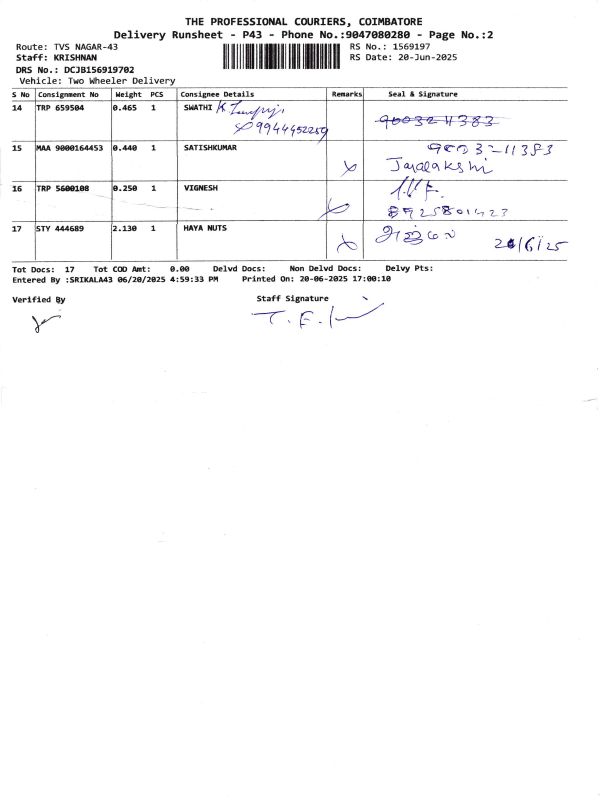 THE PROFESSIONAL COURIERS, COIMBATORE
Delivery Runsheet - P43 - Phone No.:9047080280 - Page No.:2
Route: TVS NAGAR-43 RS No.: 1569197
Staff: KRISHNAN RS Date: 20-Jun-2025
DRS No.: DCJB156919702
Vehicle: Two Wheeler Delivery
S No Consignment No Weight PCS Consignee Details Remarks Seal & Signature
14 TRP 659504 0.465 1 SWATHI 9003211383
9944452259
15 MAA 9000164453 0.440 1 SATISHKUMAR 90032-11383
16 TRP 5600108 0.250 1 VIGNESH
17 STY 444689 2.130 1 HAYA NUTS
Tot Docs: 17 Tot COD Amt: 0.00 Delvd Docs: Non Delvd Docs: Delvy Pts:
Entered By :SRIKALA43 06/20/2025 4:59:33 PM Printed On: 20-06-2025 17:00:10
Verified By Staff Signature